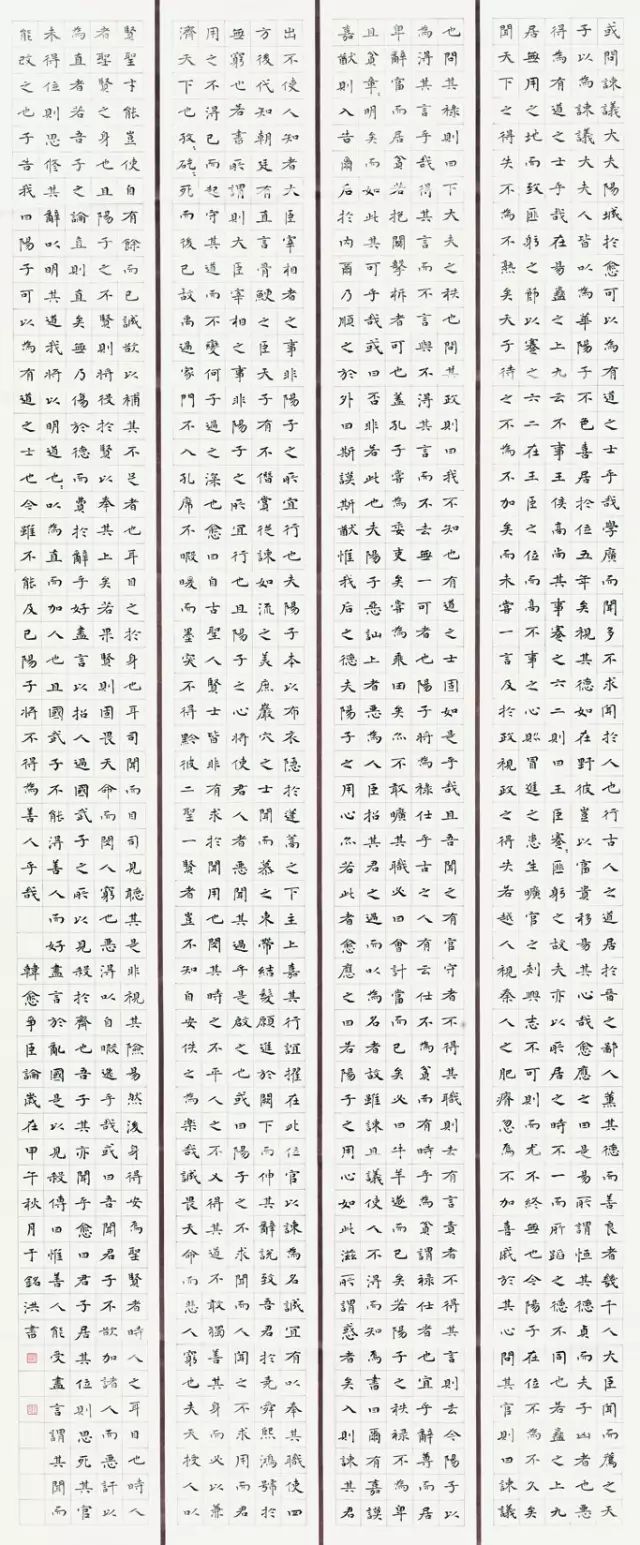 或問諫議大夫陽城於愈可以為有道之士乎哉學廣而聞多不求聞於人也行古人之道居於晉之鄙人薰其德而善良者幾千人大臣聞而薦之天
子以為諫議大夫人皆以為華陽子不色喜居於位五年矣視其德如在野彼豈以富貴移易其心哉愈應之曰是易所謂恒其德貞而夫子凶者也惡
得為有道之士乎哉在易蠱之上九云不事王侯高尚其事蹇之六二則曰王臣蹇匪躬之故夫亦以所居之時不一而所蹈之德不同也若蠱之上九
居無用之地而致匪躬之節以蹇之六二在王臣之位而高不事之心則冒進之患生曠官之刺興志不可則而尤不終無也今陽子在位不為不久矣
聞天下之得失不為不熟矣天子待之不為不加矣而未嘗一言及於政視政之得失若越人視秦人之肥瘠忽焉不加喜戚於其心問其官則曰諫議
也問其祿則曰下大夫之秩也問其政則曰我不知也有道之士固如是乎哉且吾聞之有官守者不得其職則去有言責者不得其言則去今陽子以
為得其言乎哉得其言而不言與不得其言而不去無一可者也陽子將為祿仕乎古之人有云仕不為貧而有時乎為貧謂祿仕者也宜乎辭尊而居
卑辭富而居貧若抱關擊柝者可也蓋孔子嘗為委吏矣嘗為乘田矣亦不敢曠其職必曰會計當而已矣必曰牛羊遂而已矣若陽子之秩祿不為卑
且貧章明矣而如此其可乎哉或曰否非若此也夫陽子惡訕上者惡為人臣招其君之過而以為名者故雖諫且議使人不得而知焉書曰爾有嘉謨
嘉猷則入告爾后於內爾乃順之於外曰斯謨斯猷惟我后之德夫陽子之用心亦若此者愈應之曰若陽子之用心如此滋所謂惑者矣入則諫其君
出不使人知者大臣宰相者之事非陽子之所宜行也夫陽子本以布衣隱於蓬蒿之下主上嘉其行誼擢在此位官以諫為名誠宜有以奉其職使四
方後代知朝廷有直言骨鯁之臣天子有不僭賞從諫如流之美庶巖穴之士聞而慕之束帶結髮願進於闕下而伸其辭說致吾君於堯舜熙鴻號於
無窮也若書所謂則大臣宰相之事非陽子之所宜行也且陽子之心將使君人者惡聞其過乎是啟之也或曰陽子之不求聞而人聞之不求用而君
用之不得已而起守其道而不變何子過之深也愈曰自古聖人賢士皆非有求於聞用也閔其時之不平人之不乂得其道不敢獨善其身而必以兼
濟天下也孜矻死而後已故禹過家門不入孔席不暇暖而墨突不得黔彼二聖一賢者豈不知自安佚之為樂哉誠畏天命而悲人窮也夫天授人以
賢聖才能豈使自有餘而已誠欲以補其不足者也耳目之於身也耳司聞而目司見聽其是非視其險易然後身得安焉聖賢者時人之耳目也時人
者聖賢之身也且陽子之不賢則將役於賢以奉其上矣若果賢則固畏天命而閔人窮也惡得以自暇逸乎哉或曰吾聞君子不欲加諸人而惡訐以
為直者若吾子之論直則直矣無乃傷於德而費於辭乎好盡言以招人過國武子之所以見殺於齊也吾子其亦聞乎愈曰君子居其位則思死其官
未得位則思修其辭以明其道我將以明道也非以為直而加人也且國武子不能得善人而好盡言於亂國是以見殺傳曰惟善人能受盡言謂其聞而
能改之也子告我曰陽子可以為有道之士也今雖不能及已陽子將不得為善人乎哉 韓愈爭臣論歲在甲午秋月于銘洪書